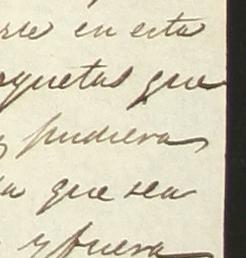 rse en esta
quetas que
y pudiera
que sea
y fuera